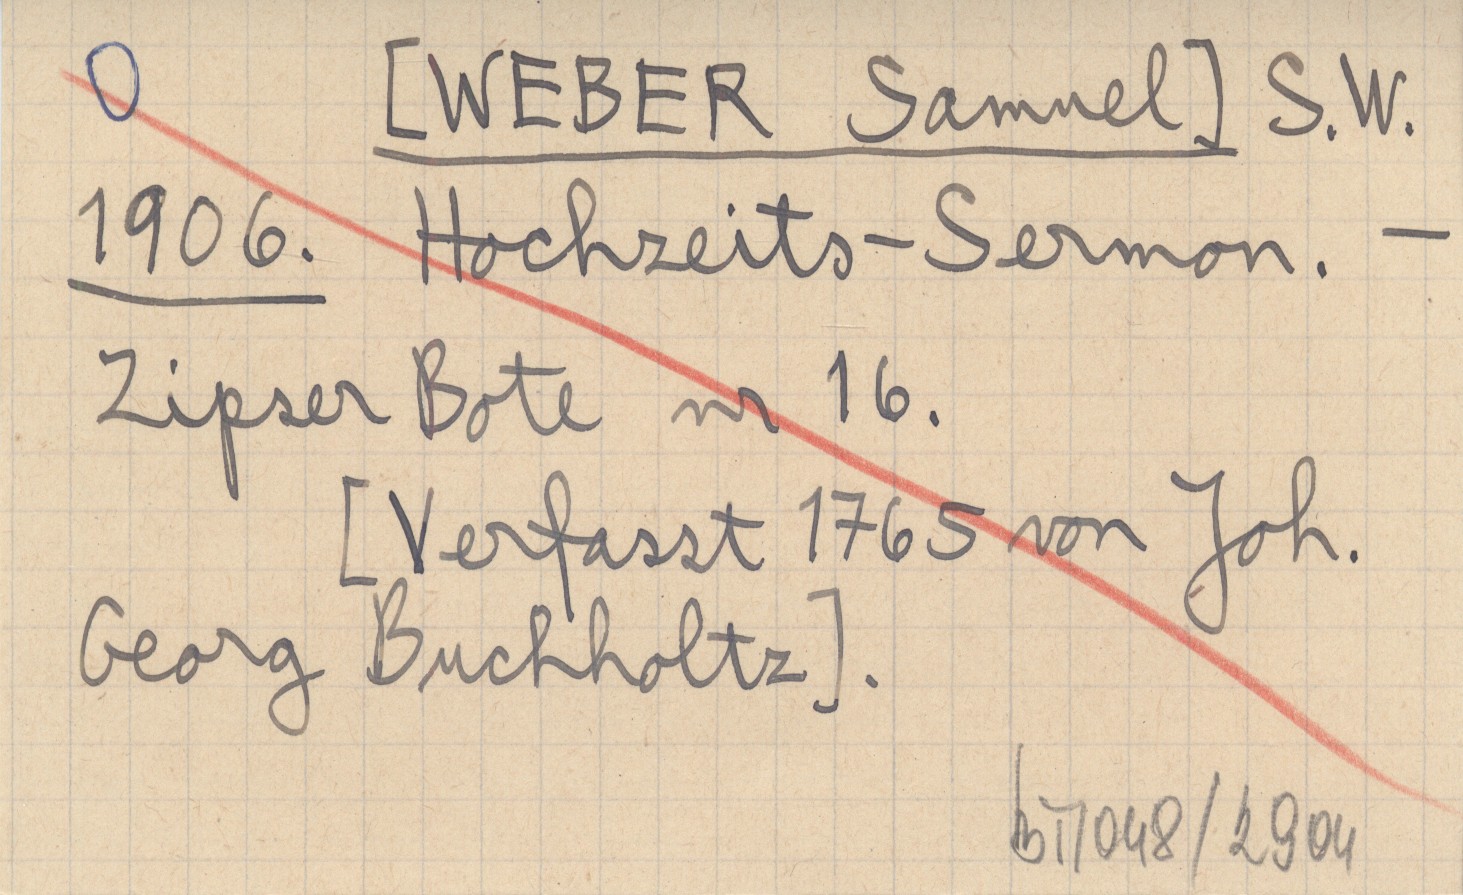 0 [WEBER Samuel] S.W.
1906. Hochzeits-Sermon. —
Zipser Bote nr 16.
[Verfasst 1765 von Joh.
Georg Buchholtz].
/2904